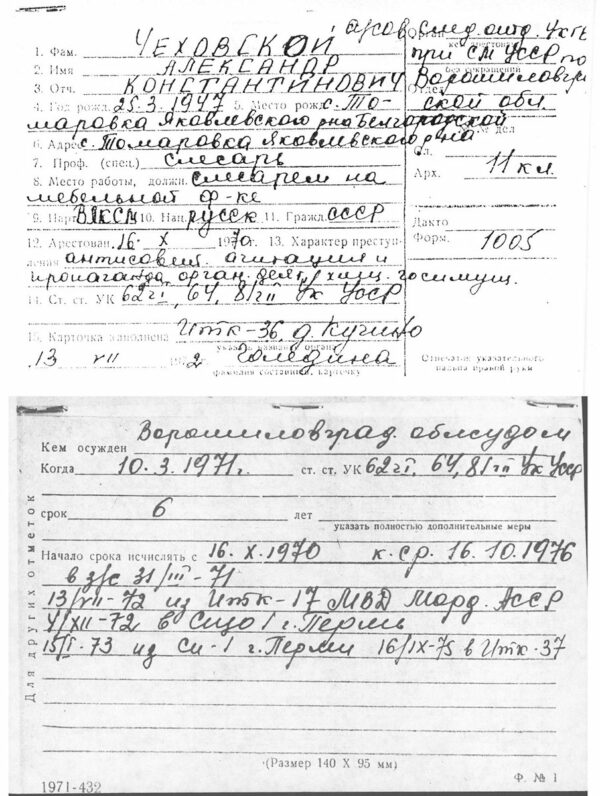 арх. след. отд. УКГБ
Орган,
при СМ УССР по
без сокращения
Ворошиловград
Отдел
ской обл.
№ дел
Сл.
Арх. 11 кл.
Дакто
Форм. 1005
Отпечаток указательного
пальца правой руки
1. Фам. ЧЕХОВСКОЙ
2. Имя АЛЕКСАНДР
3. Отч. КОНСТАНТИНОВИЧ
4. Год рожд. 25.3.1947 5. Место рожд. с. То-
маровка Яковлевского р-на Белгородской
6. Адрес с. Томаровка Яковлевского р-на
7. Проф. (спец.) слесарь
8. Место работы, должн. слесарем на
мебельной ф-ке
9. Парт. ВЛКСМ 10. Нац. русск 11. Гражд. СССР
12. Арестован 16. X 1970 г. 13. Характер преступ-
ления антисовет. агитация и
пропаганда, орган. деят., хищ. госимущ.
14. Ст. ст. УК 62 ч I, 64, 81 ч II УК УССР
15. Карточка заполнена Итк-36, д. Кучино
указать назван. орган
13 VII 1972 Голедина
фамилия составит. карточку
Кем осужден Ворошиловград. облсудом
Когда 10.3.1971 г. ст. ст. УК 62 ч I, 64, 81 ч II УК УССР
срок 6 лет
указать полностью дополнительные меры
Начало срока исчислять с 16. X. 1970 к. ср. 16. 10. 1976
в з/с 31/III-71
13/VII-72 из Итк-17 МВД Морд. АССР
4/XII-72 в Сизо 1 г. Пермь
15/I-73 из Си-1 г. Перми 16/IX-75 в Итк-37
Для других отметок
(Размер 140 X 95 мм)
1971-432
Ф. № 1